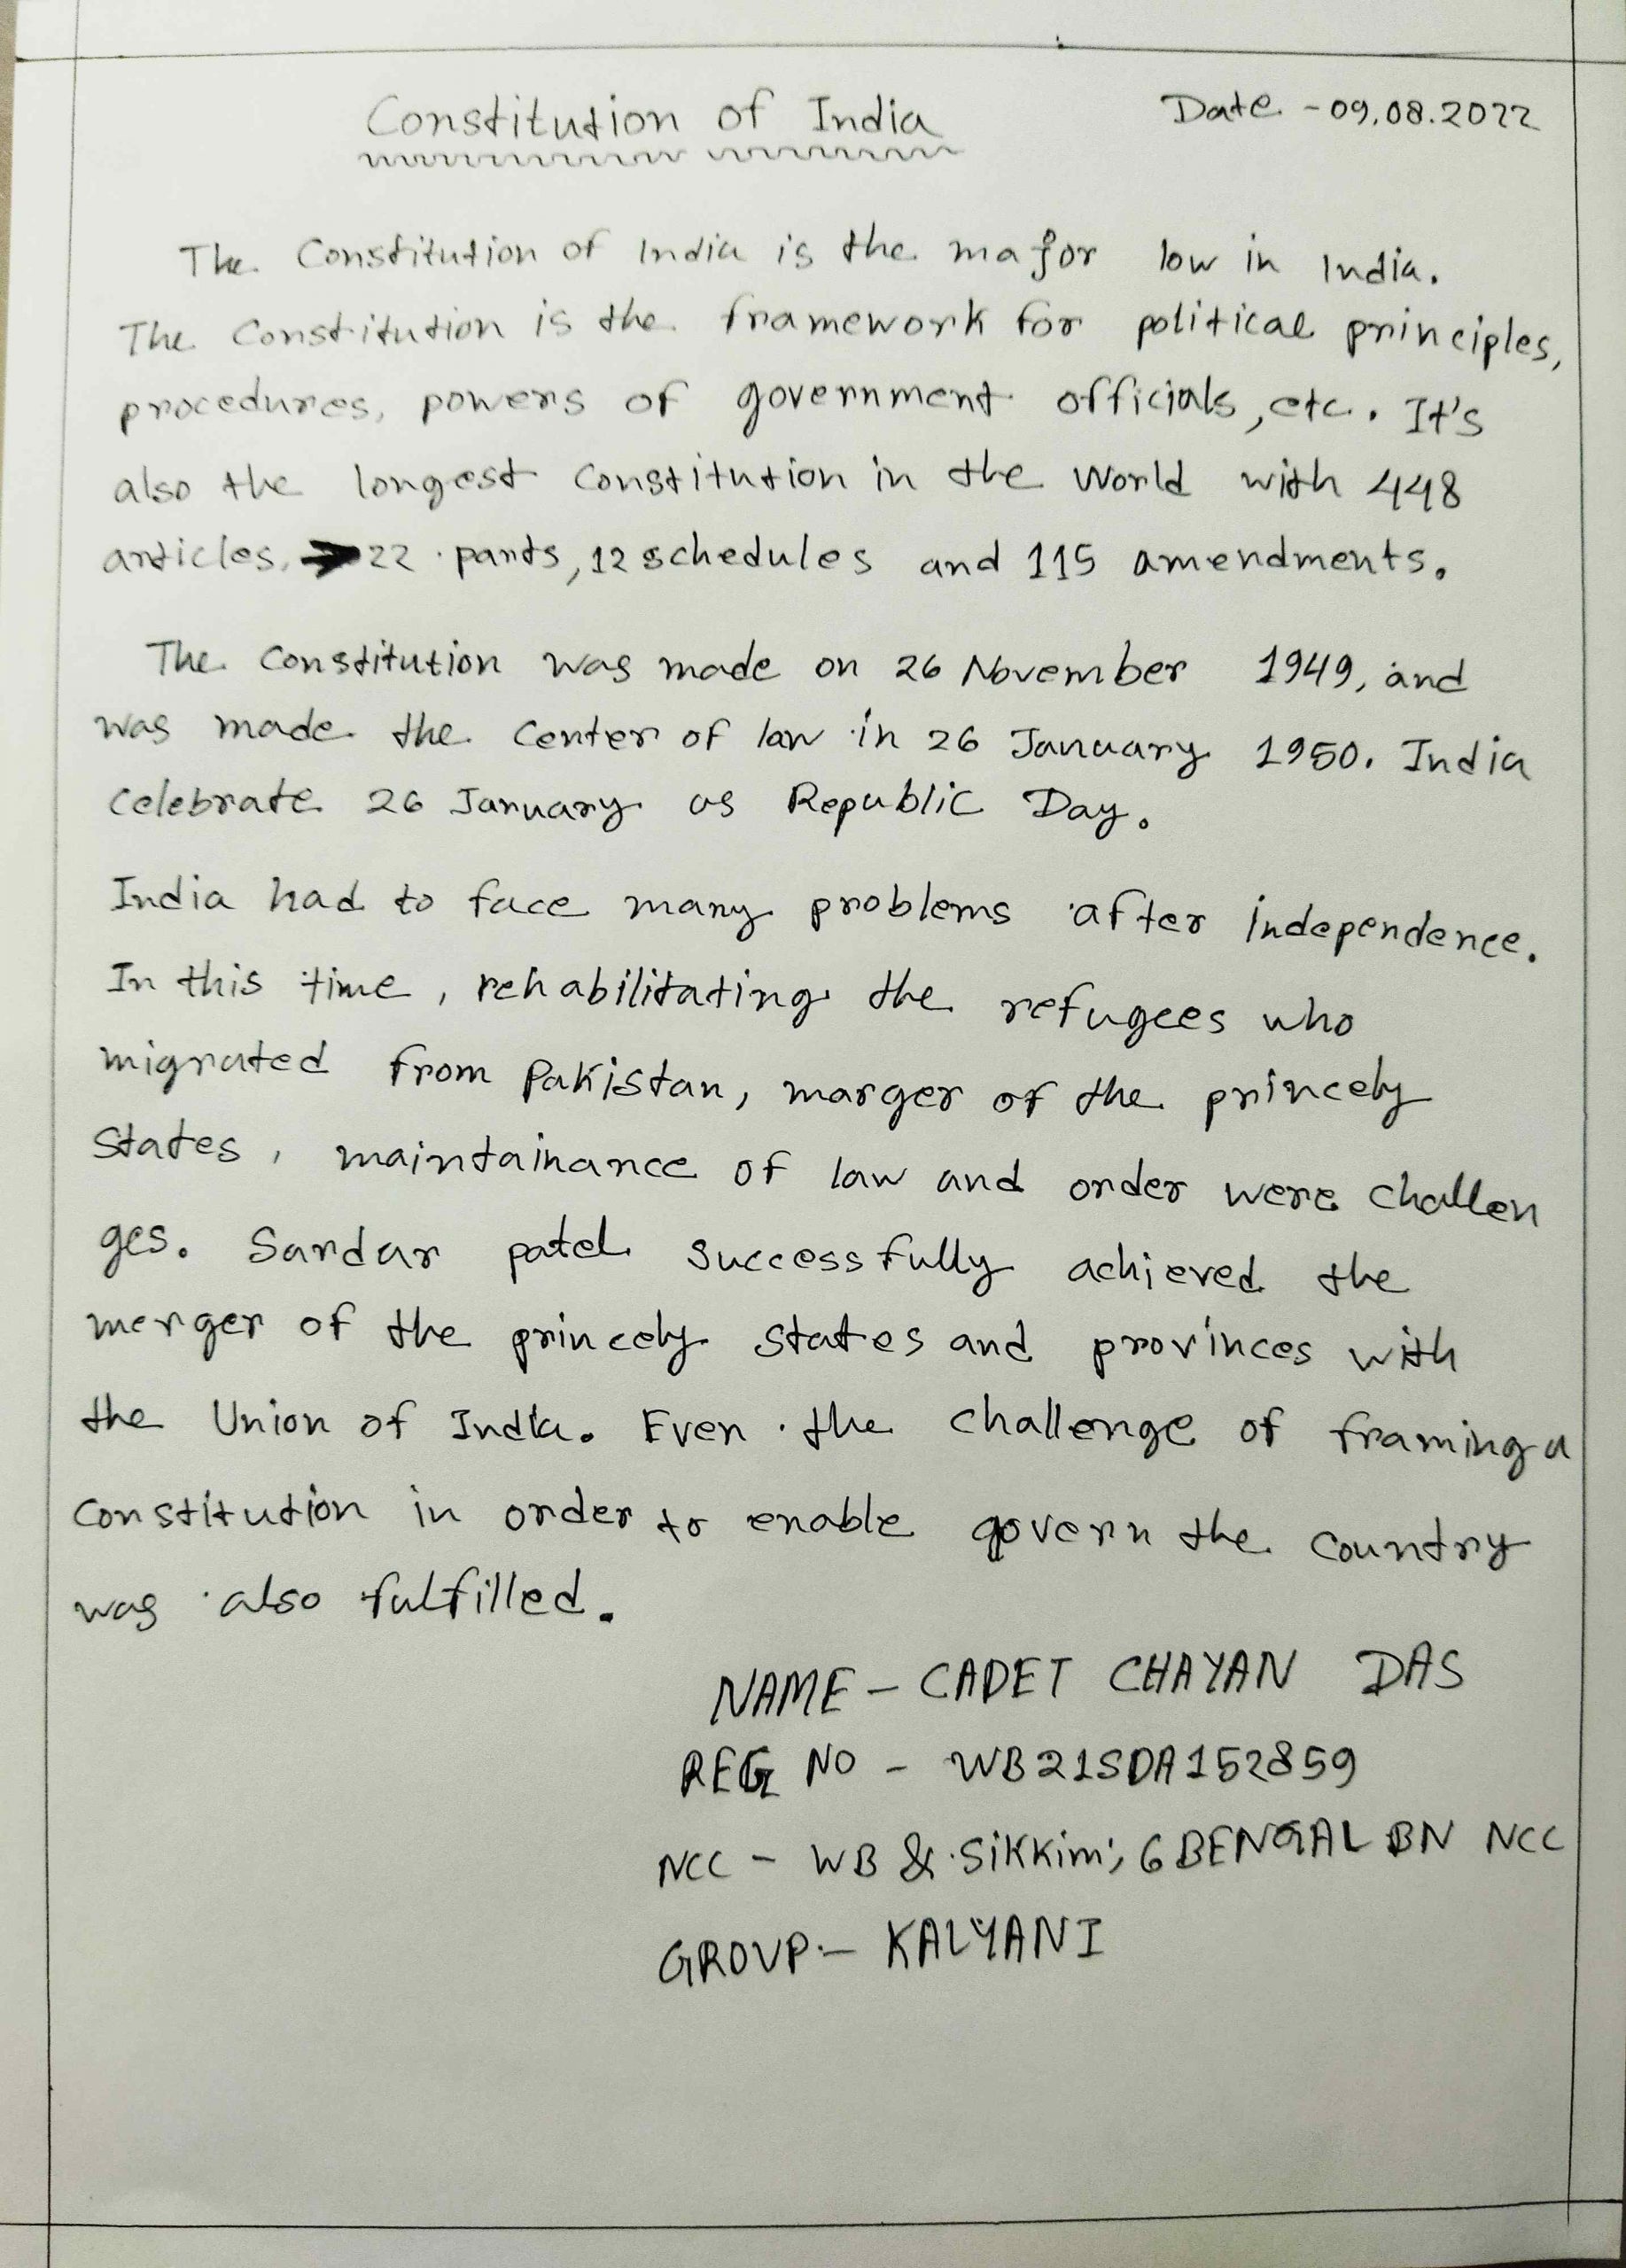 Constitution of India
Date - 09.08.2022
The Constitution of India is the major low in India.
The Constitution is the framework for political principles,
procedures, powers of government officials, etc. It's
also the longest constitution in the World with 448
articles, → 22 parts, 12 schedules and 115 amendments.
The constitution was made on 26 November 1949, and
was made the center of law in 26 January 1950. India
celebrate 26 January as Republic Day.
India had to face many problems after independence.
In this time, rehabilitating the refugees who
migrated from Pakistan, marger of the princely
states, maintainance of law and order were challen
ges. Sardar patel successfully achieved the
merger of the princely states and provinces with
the Union of India. Even the challenge of framing a
constitution in order to enable govern the country
was also fulfilled.
NAME - CADET CHAYAN DAS
REG NO - WB21SDA152859
NCC - WB & Sikkim; 6 BENGAL BN NCC
GROUP:- KALYANI